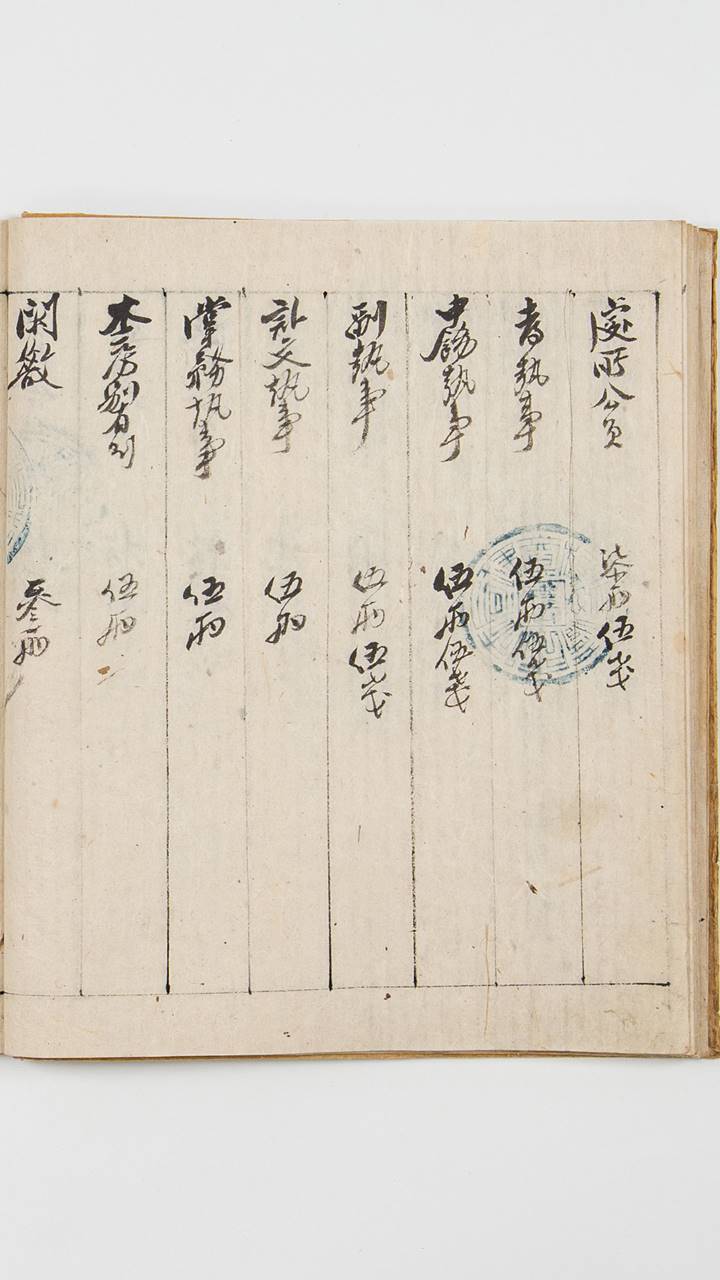 處所公員 柒兩伍戔
執事 伍兩伍戔
中執事 伍兩伍戔
副執事 伍兩伍戔
文執事 伍兩
掌務執事 伍兩
本房 伍兩
閑散 參兩